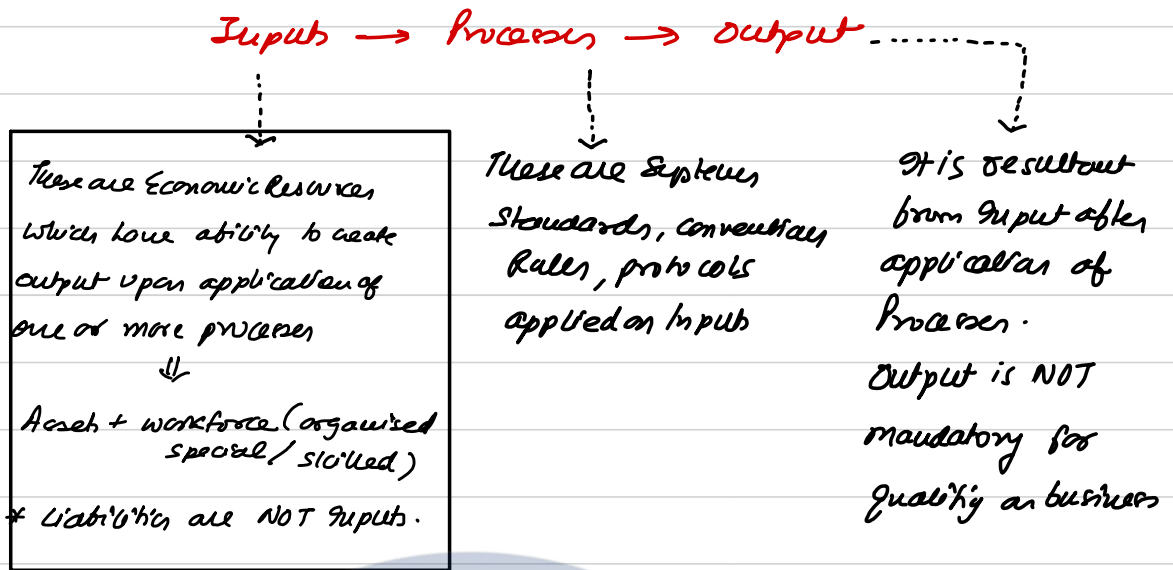 Inputs → Processes → Output
These are Economic Resources
which have ability to create
output upon application of
one or more processes
⇓
Assets + workforce (organised
special / skilled)
* Liabilities are NOT Inputs.
These are Systems
Standards, conventions
Rules, protocols
applied on Inputs
It is resultant
from Input after
application of
Processes.
Output is NOT
mandatory for
qualifying as business